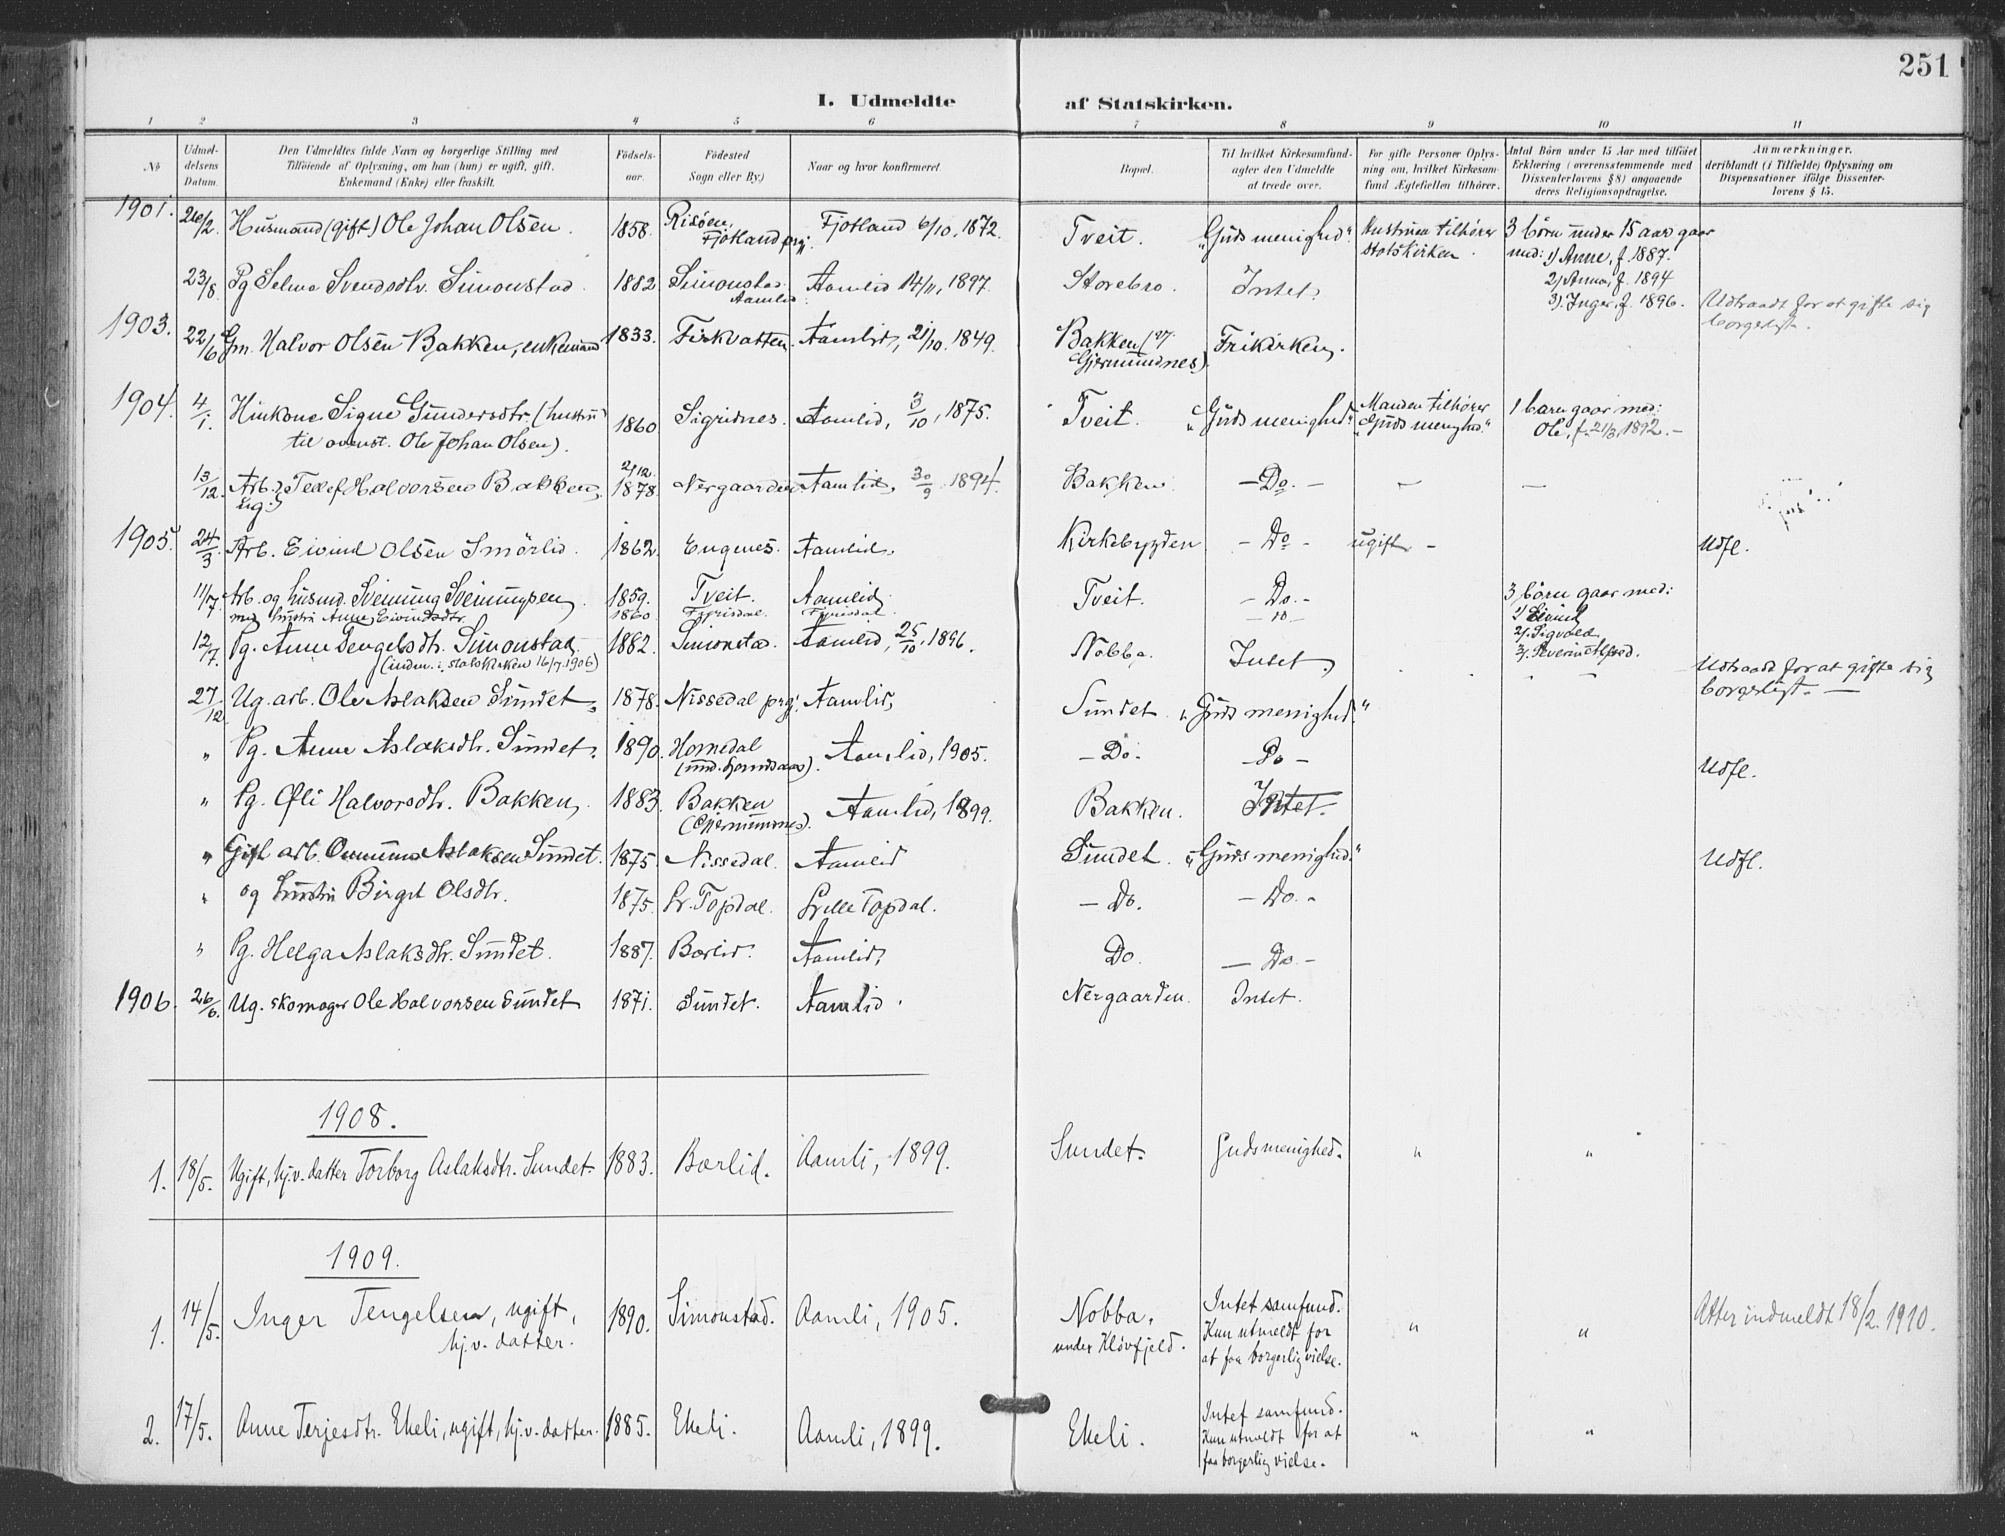 251
I. Udmeldte af Statskirken.
1 2 3 4 5 6 7 8 9 10 11
No
Udmeldelsens Datum.
Den Udmeldtes fulde Navn og borgerlige Stilling med
Tilföiende af Oplysning, om han (hun) er ugift, gift,
Enkemand (Enke) eller fraskilt.
Födselsaar.
Födested
Sogn eller By.)
Naar og hvor konfirmeret
Bopæl.
Til hvilket Kirkesamfund
agter den Udmeldte
at træde over.
For gifte Personer Oplysning om, hvilket Kirkesamfund Ægtefællen tilhörer.
Antal Börn under 15 Aar med tilföiet
Erklæring (overensstemmende med
Dissenterlovens § 8) angaaende
deres Religionsopdragelse.
Anmærkninger,
deriblandt (i Tilfælde) Oplysning om
Dispensationer ifölge Dissenterlovens § 15.
1901. 26/2. Husmand (gift) Ole Johan Olsen. 1858. Risöen, Fjotland prgj. Fjotland 6/10, 1872. Tveit. "Guds menighed". Hustruen tilhörer statskirken. 3 börn under 15 aar gaar med: 1) Anne, f. 1887.
2) Anna, f. 1894
3). Inger, f. 1896.
23/8 Pg Selma Svendsdtr. Simonstad. 1882 Simonstad Aamlid. Aamlid 14/11, 1897. Storebro. Intet. Udtraadt for at gifte sig borgerligt.
1903. 22/6 Gm. Halvor Olsen Bakken, enkemand 1833. Firkvatten. Aamlid, 21/10. 1849. Bakken (v. Gjermundnes). Frikirken.
1904. 4/1. Huskone Signe Gundersdtr. (hustru
til ovenst. Ole Johan Olsen). 1860 Sigridnes. Aamlid, 3/10, 1875. Tveit. "Guds menighed" Manden tilhörer "Guds menighed." 1 barn gaar med:
Ole, f. 21/3, 1892. -
13/12. Arb. ug. Tellef Halvorsen Bakken. 2/12. 1878. Nergaarden Aamlid, 30/9 1894. Bakken - Do. - - -
1905. 24/3. Arb. Eivind Olsen Smörlid. 1862. Engenes. Aamlid. Kirkebygden - Do - ugift - Udfl.
11/7. Arb. og husmd. Sveinung Sveinungsen 1859. Tveit. Aamlid Tveit. - Do. - 3 börn gaar med:
med hustru Anne Eivindsdtr. 1860 Fyrisdal. Fyrisdal - Do - 1) Eivind
2). Sigvald
3). Severin Alfred.
12/7. Pg. Anne Tengelsdtr. Simonstad. 1882. Simonstad. Aamlid, 25/10, 1896. Nobba. Intet. Udtraadt for at gifte sig
(indm. i statskirken 16/7 1906) borgerligt. -
27/12 Ug. arb. Ole Aslaksen Sundet. 1878. Nissedal prgj. Aamlid, Sundet "Guds menighed."
" Pg. Anne Aslaksdtr. Sundet. 1890. Hornedal Aamlid, 1905. - Do. - Do - Udfl.
" Pg. Ofli Halvorsdtr. Bakken. 1883. Bakken (Gjermundnes). Aamlid, 1899. Bakken. Intet.
" Gift arb. Aslaksen Sundet. 1875 Nissedal. Aamlid Sundet. "Guds menighed." Udfl.
" og hustru Birgit Olsdtr. 1875. Lr. Topdal. Lille Topdal. - Do. - Do. -
" Pg. Helga Aslaksdtr. Sundet. 1887. Borlid. Aamlid, Do. - Do. -
1906. 26/6. Ug. skomager Ole Halvorsen Sundet 1871. Sundet. Aamlid. Nergaarden. Intet.
1908.
1. 18/5. Ugift, hj.v. datter Torborg Aslaksdtr. Sundet. 1883. Borlid. Aamli, 1899. Sundet. Gudsmenighed. " "
1909.
1. 14/5. Inger Tengelsen, ugift,
hj.v. datter. 1890. Simonstad. Aamli, 1905. Nobba,
under Klövfjeld. Intet samfund.
Kun utmeldt for
at faa borgerlig vielse. " " Atter indmeldt 18/2. 1910.
2. 17/5. Anne Terjesdtr. Ekeli, ugift, hj.v. datter. 1885. Ekeli. Aamli, 1899. Ekeli. Intet samfund.
Kun utmeldt for at
faa borgerlig vielse. " "